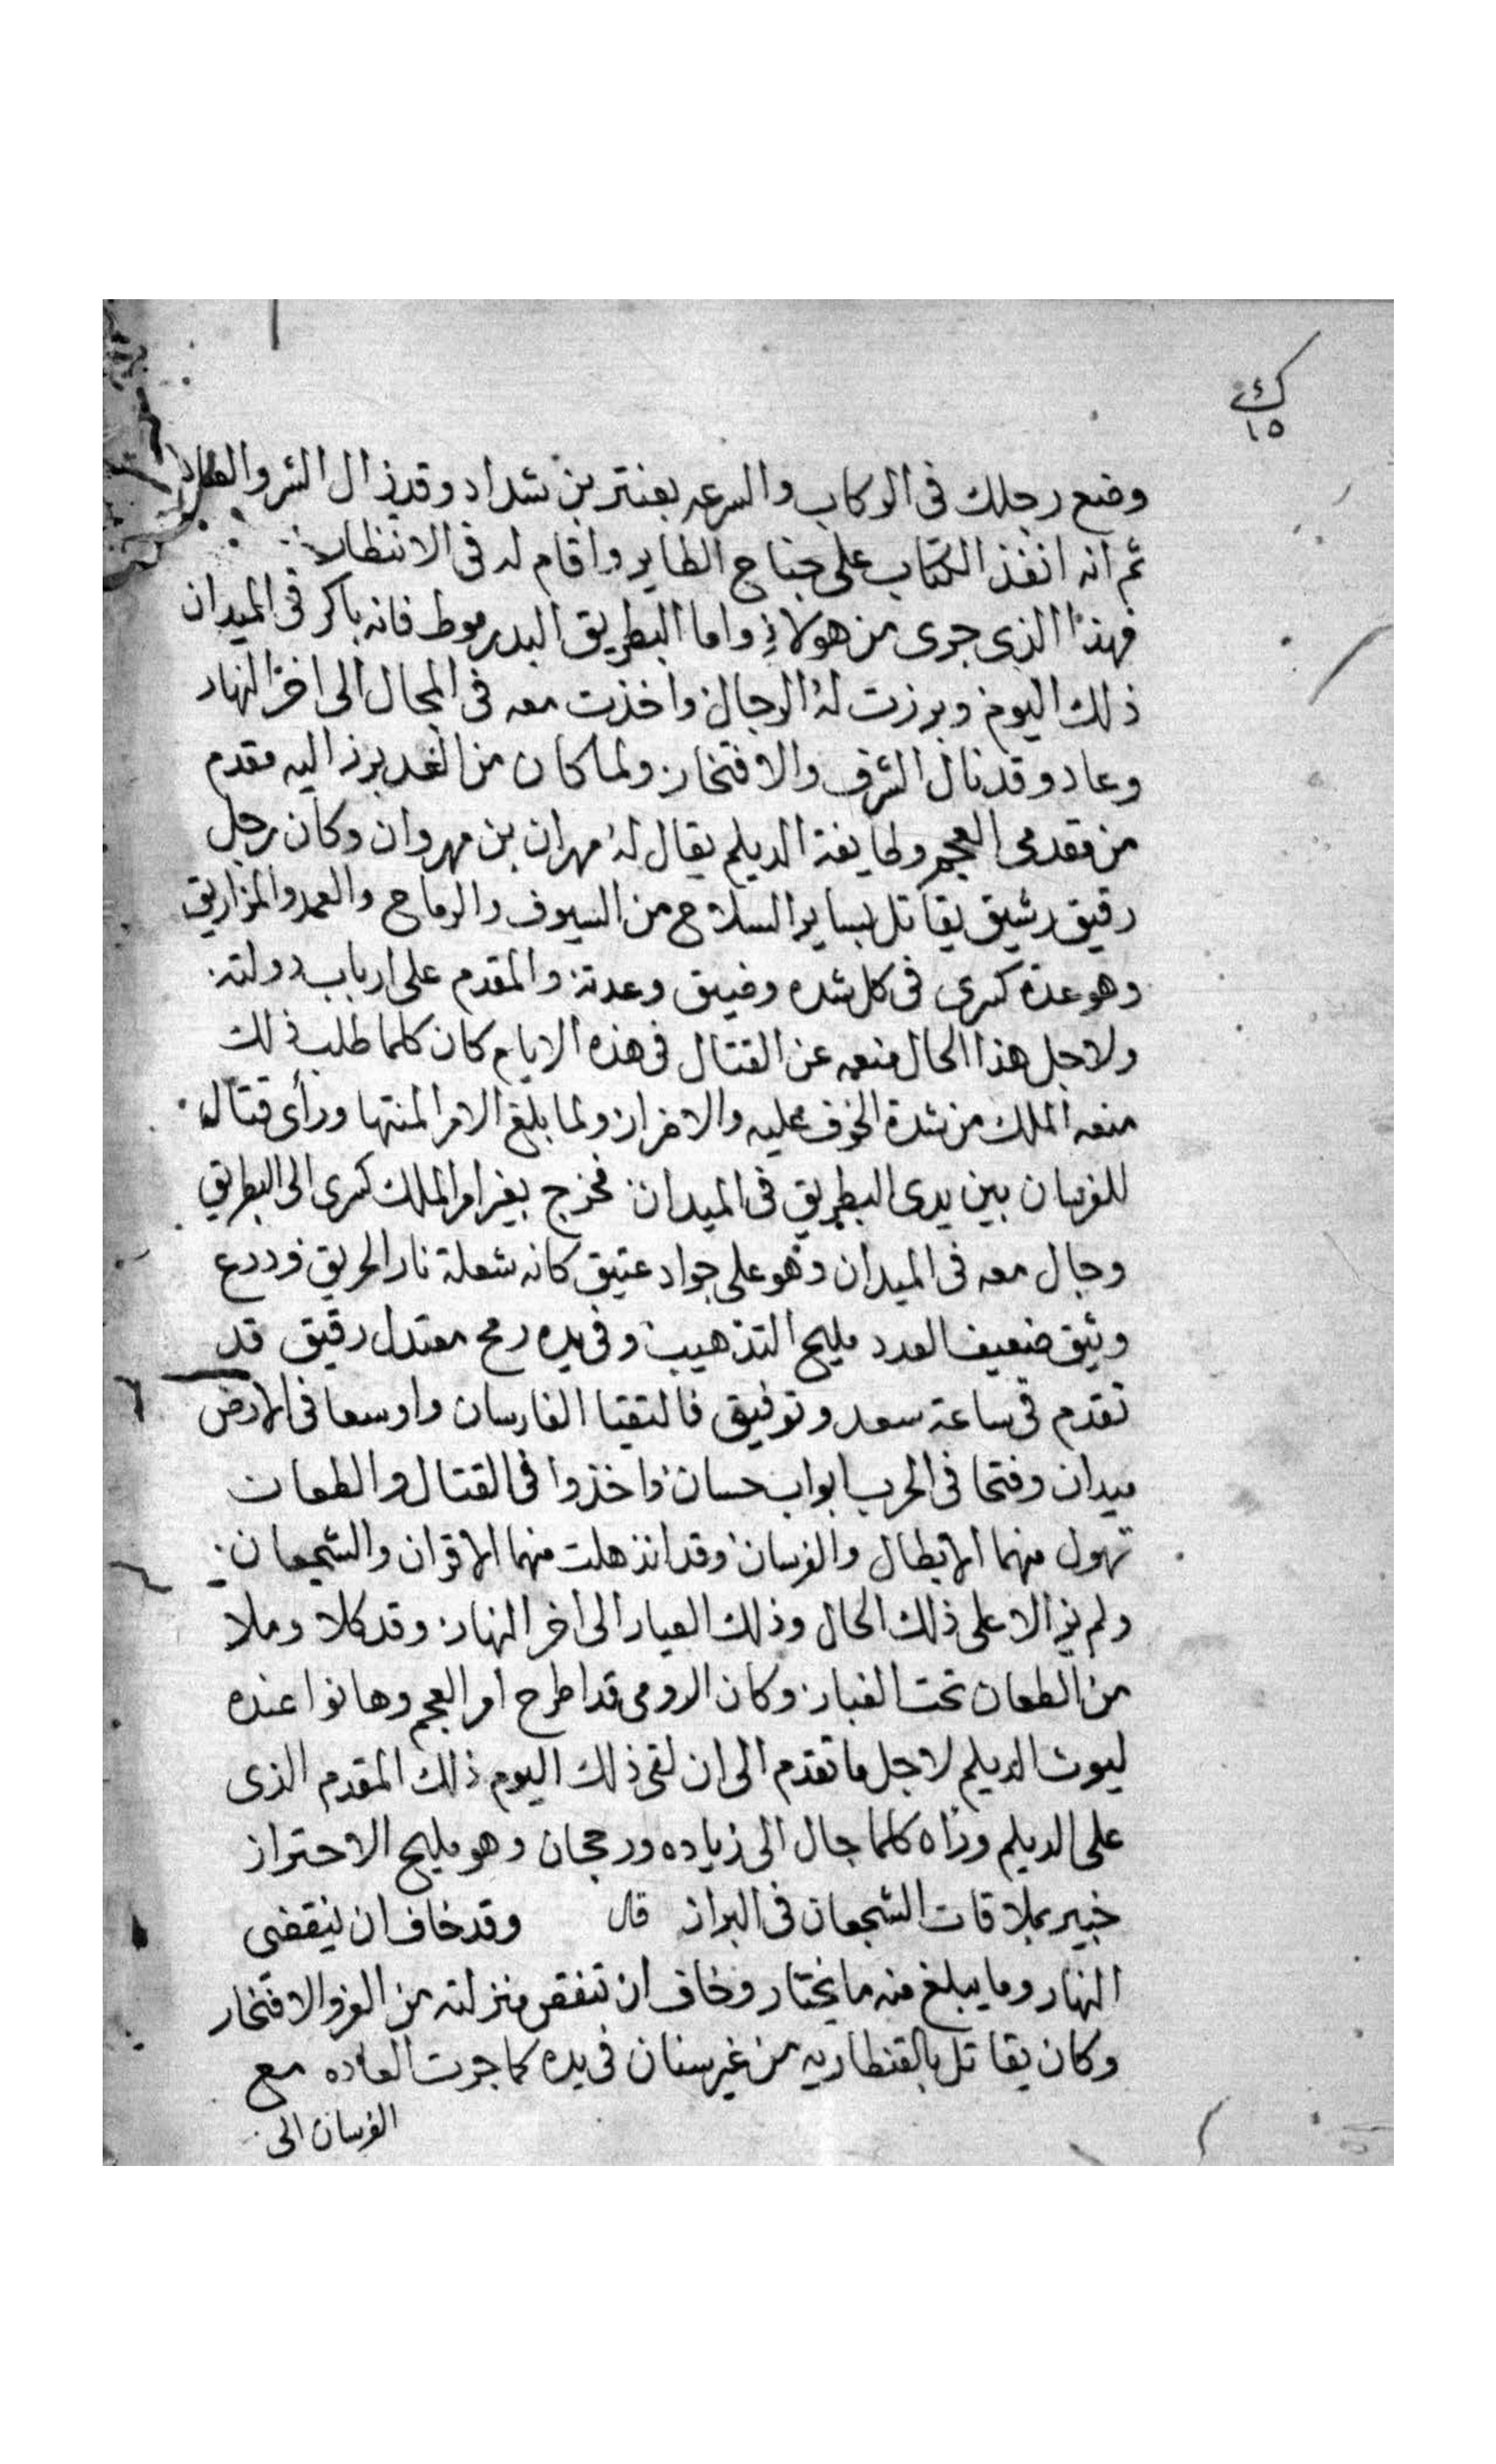 ك
١٥
وضع رجلك فى الركاب والسرعه بعنتر بن شداد وقد زال الشر والعناد
ثم انه انفذ الكتاب على جناح الطاير واقام له فى الانتظار
فهذا الذى جرى من هولاى واما البطريق البدرموط فانه باكر فى الميدان
ذلك اليوم وبرزت له الرجال واخذت معه فى المجال الى اخر النهار
وعاد وقد نال الشرف والافتخار ولما كان من الغد برز اليه مقدم
من مقدمى العجم وطايفة الديلم يقال له مهران بن مهروان وكان رجل
رقيق رشيق يقاتل بساير السلاح من السيوف والرماح والعمد والمزاريق
وهو عدة كسرى فى كل شده وضيق وعدته والمقدم على ارباب دولته
ولاجل هذا الحال منعه عن القتال فى هذه الايام كان كلما طلب ذلك
منعه الملك من شدة الخوف عليه والاضرار ولما بلغ الامر المنتها وراى قتال
للفرسان بين يدى البطريق فى الميدان فخرج بغير امر الملك كسرى الى البطريق
وجال معه فى الميدان وهو على جواد عتيق كانه شعلة نار الحريق ودرع
وثيق ضعيف العدد مليح التذهيب وفى يده رمح معتدل رقيق قد
تقدم فى ساعة سعد وتوفيق فالتقيا الفارسان واوسعا فى الارض
ميدان وفتحا فى الحرب ابواب حسان واخذوا فى القتال والطعان
تهول منهما الابطال والفرسان وقد انذهلت منهما الاقران والشجعان
ولم يزالا على ذلك الحال وذلك العيار الى اخر النهار وقد كلا وملا
من الطعان تحت الغبار وكان الرومى قد اطرح امر العجم وهانوا عنده
ليوث الديلم لاجل ما تقدم الى ان لقى ذلك اليوم ذلك المقدم الذى
على الديلم وراه كلما جال الى زياده ورجحان وهو مليح الاحتراز
خبير بملاقات الشجعان فى البراز قال وقد خاف ان ينقضى
النهار وما يبلغ منه ما يختار وخاف ان تنقص منزلته من العز والافتخار
وكان يقاتل بالقنطاريه من غير سنان فى يده كما جرت العاده مع
الفرسان الى